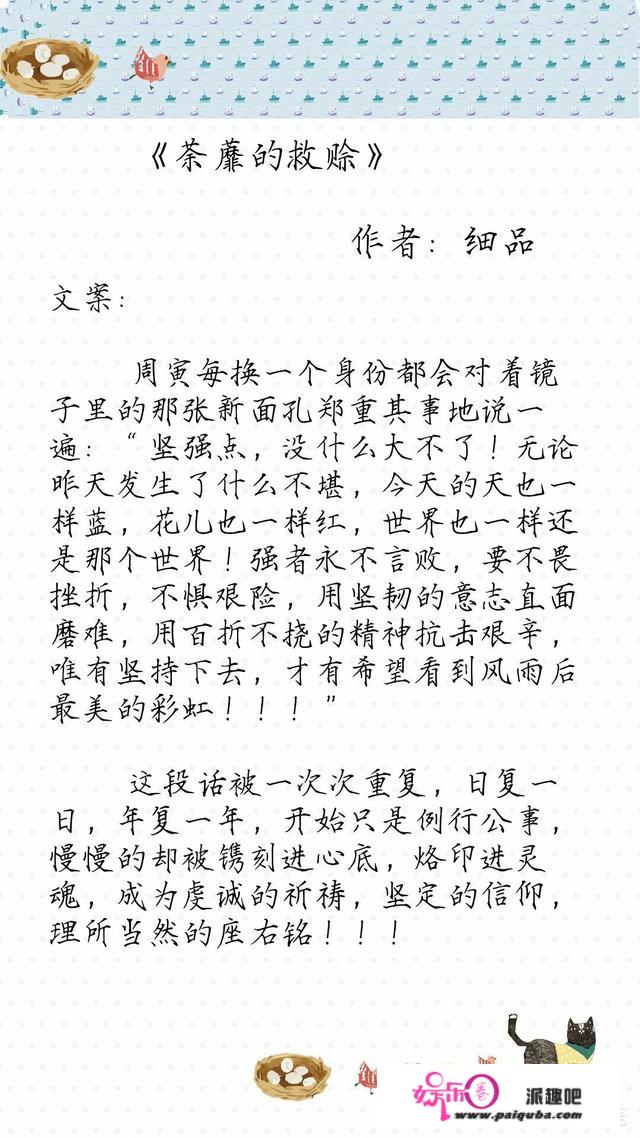 《荼蘼的救赎》
作者：细品
文案：
周寅每换一个身份都会对着镜
子里的那张新面孔郑重其事地说一
遍：“坚强点，没什么大不了！无论
昨天发生了什么不堪，今天的天也一
样蓝，花儿也一样红，世界也一样还
是那个世界！强者永不言败，要不畏
挫折，不惧艰险，用坚韧的意志直面
磨难，用百折不挠的精神抗击艰辛，
唯有坚持下去，才有希望看到风雨后
最美的彩虹！！！”
这段话被一次次重复，日复一
日，年复一年，开始只是例行公事，
慢慢的却被镌刻进心底，烙印进灵
魂，成为虔诚的祈祷，坚定的信仰，
理所当然的座右铭！！！
娱乐圈 派趣吧
www.paiquba.com